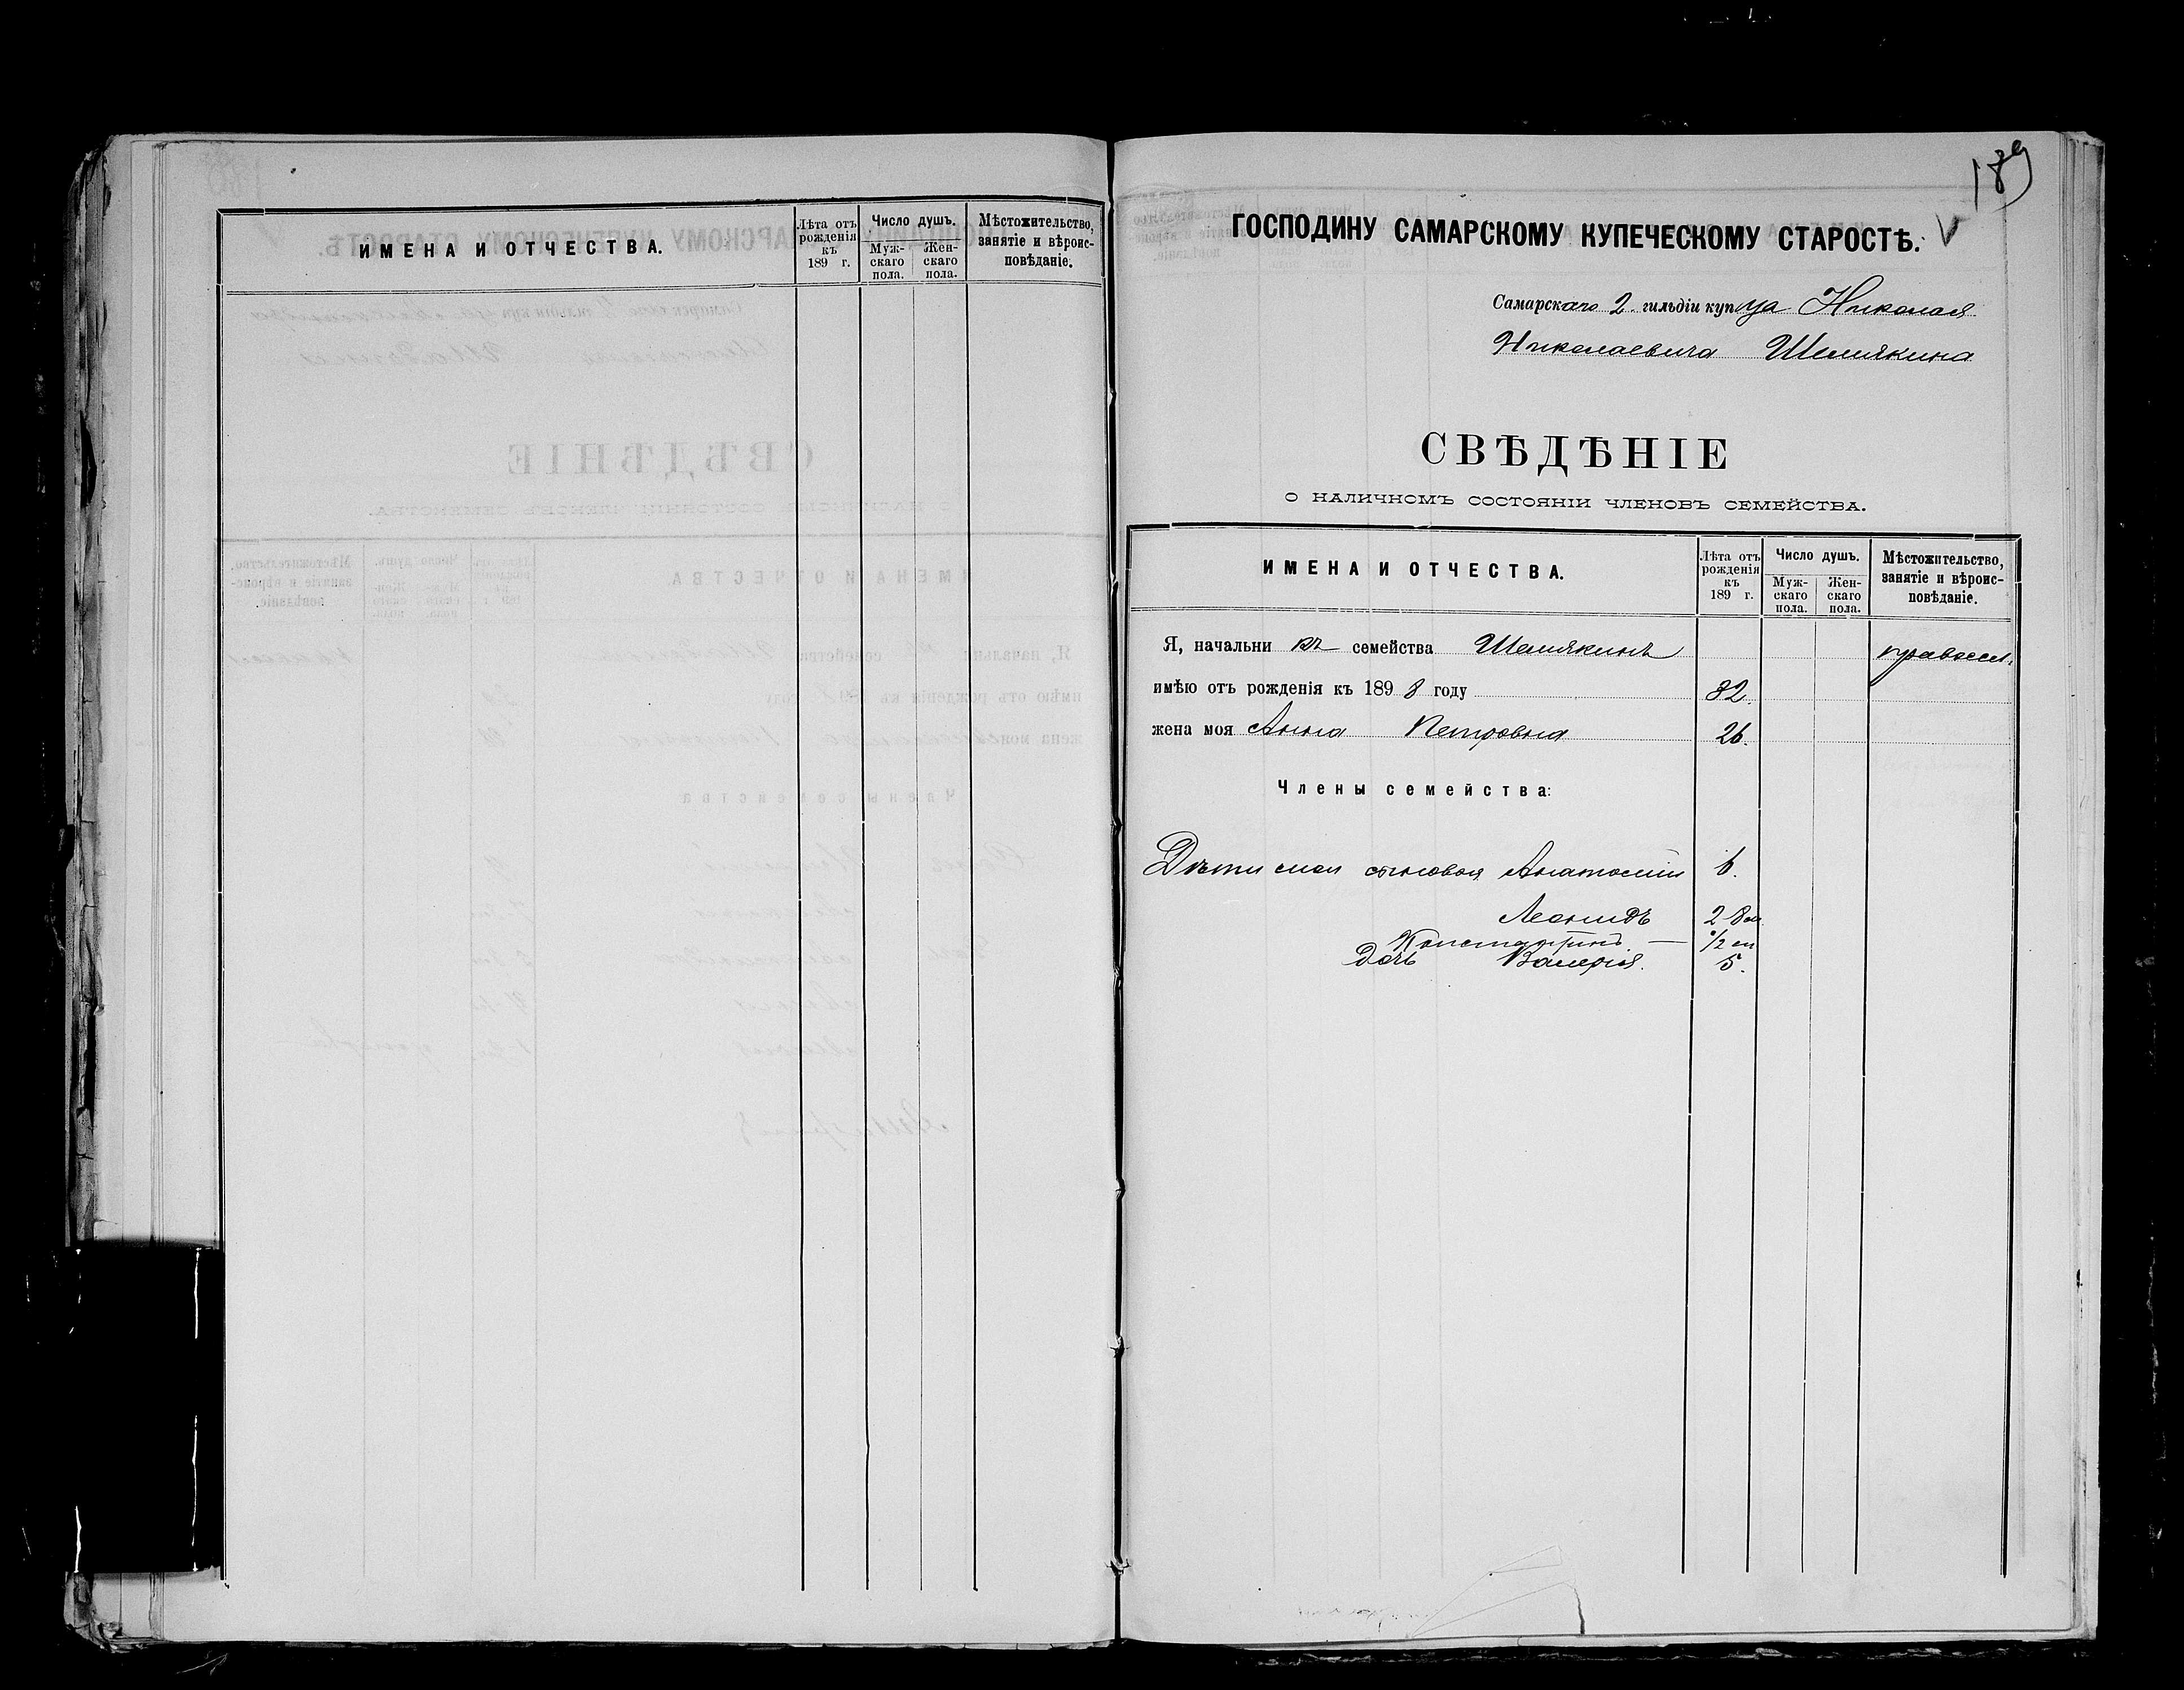 ИМЕНА И ОТЧЕСТВА.
Лѣта отъ рожденія къ 189 г.
Число душъ.
Муж-скаго пола.
Жен-скаго пола.
Мѣстожительство, занятіе и вѣроис-повѣданіе.
189
ГОСПОДИНУ САМАРСКОМУ КУПЕЧЕСКОМУ СТАРОСТѢ. V
Самарскаго 2. гильдіи купца Николая
Николаевича Шемякина
СВѢДѢНІЕ
О НАЛИЧНОМЪ СОСТОЯНІИ ЧЛЕНОВЪ СЕМЕЙСТВА.
ИМЕНА И ОТЧЕСТВА.
Лѣта отъ рожденія къ 189 г.
Число душъ.
Муж-скаго пола.
Жен-скаго пола.
Мѣстожительство, занятіе и вѣроис-повѣданіе.
Я, начальникъ семейства Шемякинъ правосл.
имѣю отъ рожденія къ 1898 году 32.
жена моя Анна Петровна 26.
Члены семейства:
Дѣти мои сыновья Анатолій 6.
Леонидъ 2 8 м
Константинъ — 1/2
дочь Валерія. 5.